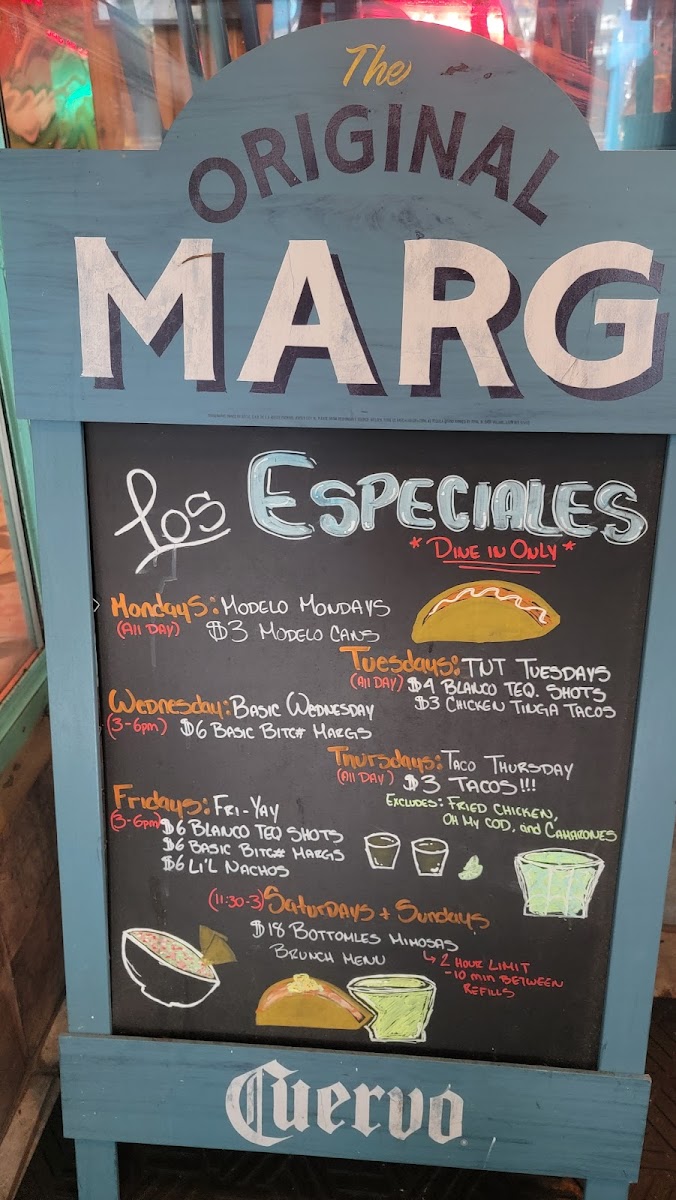 The
ORIGINAL
MARG
Los ESPECIALES
* DINE IN ONLY *
Mondays: MODELO MONDAYS
(All DAY) $3 MODELO CANS
TUESDAYS: TNT TUESDAYS
(All DAY) $4 BLANCO TEQ. SHOTS
$3 CHICKEN TINGA TACOS
WEDNESDAY: BASIC WEDNESDAY
(3-6pm) $6 BASIC BITC# MARGS
THURSDAYS: TACO THURSDAY
(All DAY) $3 TACOS!!!
EXCLUDES: FRIED CHICKEN,
OH MY COD, and CAMARONES
FRIDAYS: FRI-YAY
(3-6pm) $6 BLANCO TEQ SHOTS
$6 BASIC BITC# MARGS
$6 LI'L NACHOS
(11:30-3) SATURDAYS + SUNDAYS
$18 BOTTOMLES MIMOSAS
BRUNCH MENU
↳ 2 HOUR LIMIT
-10 MIN BETWEEN
REFILLS
Cuervo